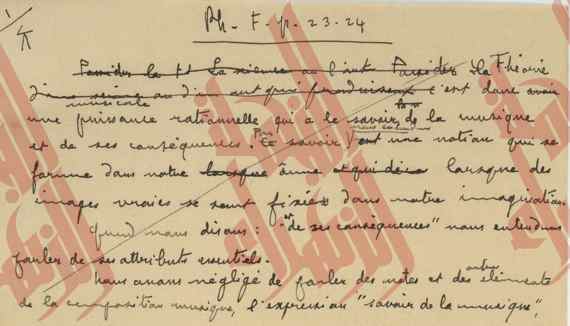 Ph - F. p. 23.24
Posséder la La science ou l'art Posséder La Théorie
d'une science ou d'un art c'est donc avoir
musicale
une puissance rationnelle qui a le savoir de la musique
et de ses conséquences. Par Ce savoir est une notion qui se
forme dans notre lorsque âme lorsque des
images vraies se sont fixées dans notre imagination.
Quand nous disons : "et de ses conséquences" nous entendons
parler de ses attributs essentiels.
Nous avons négligé de parler des notes et des autres éléments
de la composition musique, l'expression "savoir de la musique",